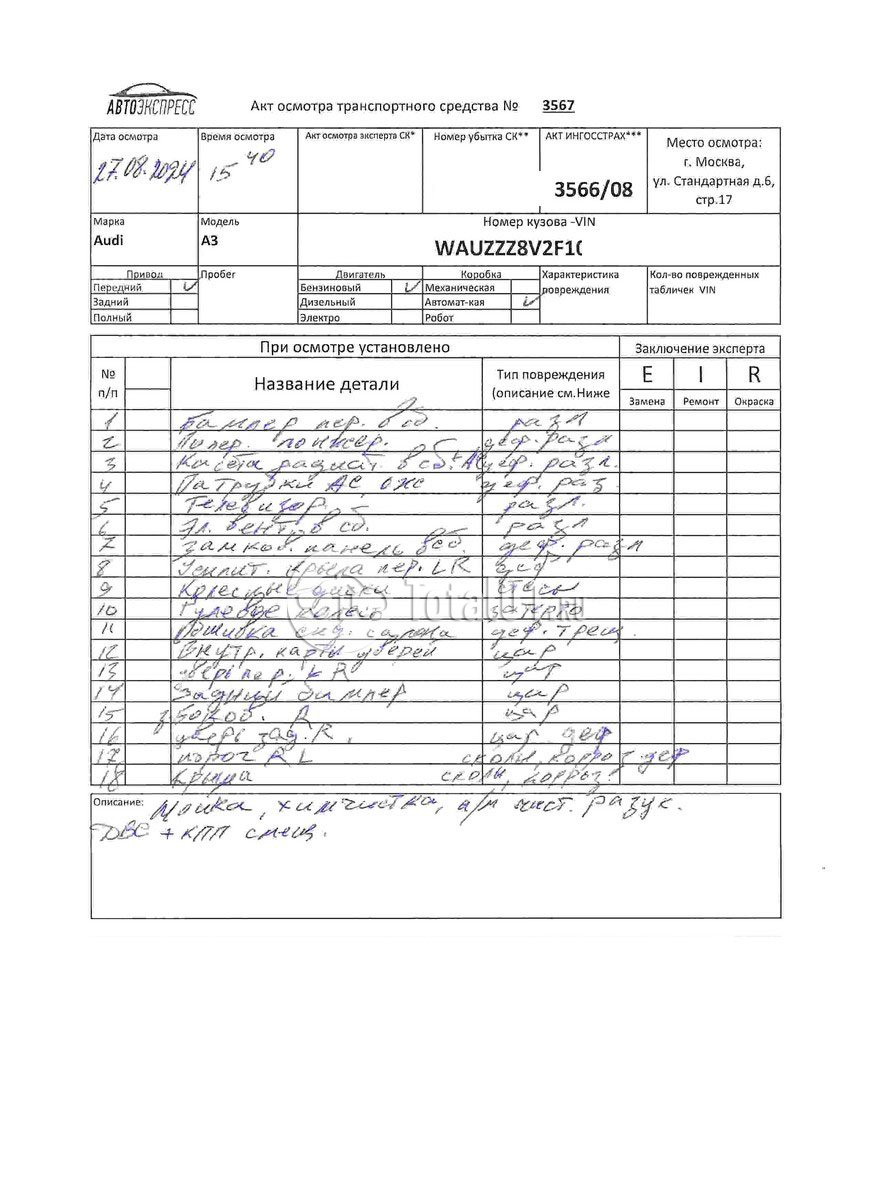 АВТОЭКСПРЕСС
Акт осмотра транспортного средства № 3567
Дата осмотра Время осмотра Акт осмотра эксперта СК* Номер убытка СК** АКТ ИНГОССТРАХ*** Место осмотра:
г. Москва,
27.08.2024 15 40 3566/08 ул. Стандартная д.6,
стр.17
Марка Модель Номер кузова -VIN
Audi A3 WAUZZZ8V2F1(
Привод Пробег Двигатель Коробка Характеристика Кол-во поврежденных
Передний Бензиновый Механическая ровреждения табличек VIN
Задний Дизельный Автомат-кая
Полный Электро Робот
При осмотре установлено Заключение эксперта
№ п/п Название детали Тип повреждения (описание см.Ниже E I R
Замена Ремонт Окраска
1 Бампер пер. в сб. разл
2 деф. разл
3 Касета радиат. в сб. + АС деф. разл.
4 Патрубки АС, ОЖ деф. раз
5 Телевизор разл.
6 Эл. вент. в сб. разл
7 Замков. панель в сб. деф. разл
8 Усилит. крыла пер. LR деф
9 Колесные диски
10 Рулевое колесо
11 салона деф. трещ.
12 Внутр. карты дверей цар
13 дверь пер. L R цар
14 Задний бампер цар
15 R цар
16 дверь зад. R. цар деф
17 порог R L сколы, корроз деф
18 Крыша сколы, корроз
Описание: Мойка, химчистка, а/м част. разук.
ДВС + КПП смещ.
TotalOut.RU